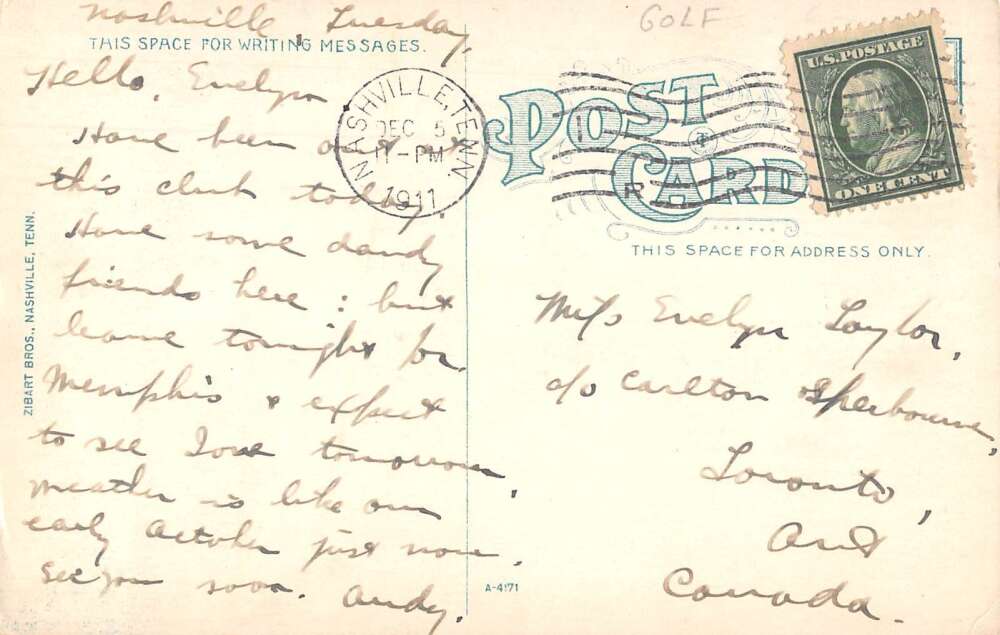 Nashville, Tuesday,
THIS SPACE FOR WRITING MESSAGES.
Hello, Evelyn
Have been out at
this club today.
Have some dandy
friends here: but
leave tonight for
Memphis & expect
to see Ione tomorrow,
Weather is like our
early October just now,
See you soon. Andy.
ZIBART BROS., NASHVILLE, TENN.
GOLF
NASHVILLE, TENN.
DEC 5
11-PM
1911
POST CARD
U.S. POSTAGE
ONE CENT
THIS SPACE FOR ADDRESS ONLY.
Miss Evelyn Taylor,
c/o Carlton & Sherbourne,
Toronto,
Ont
Canada.
A-4171